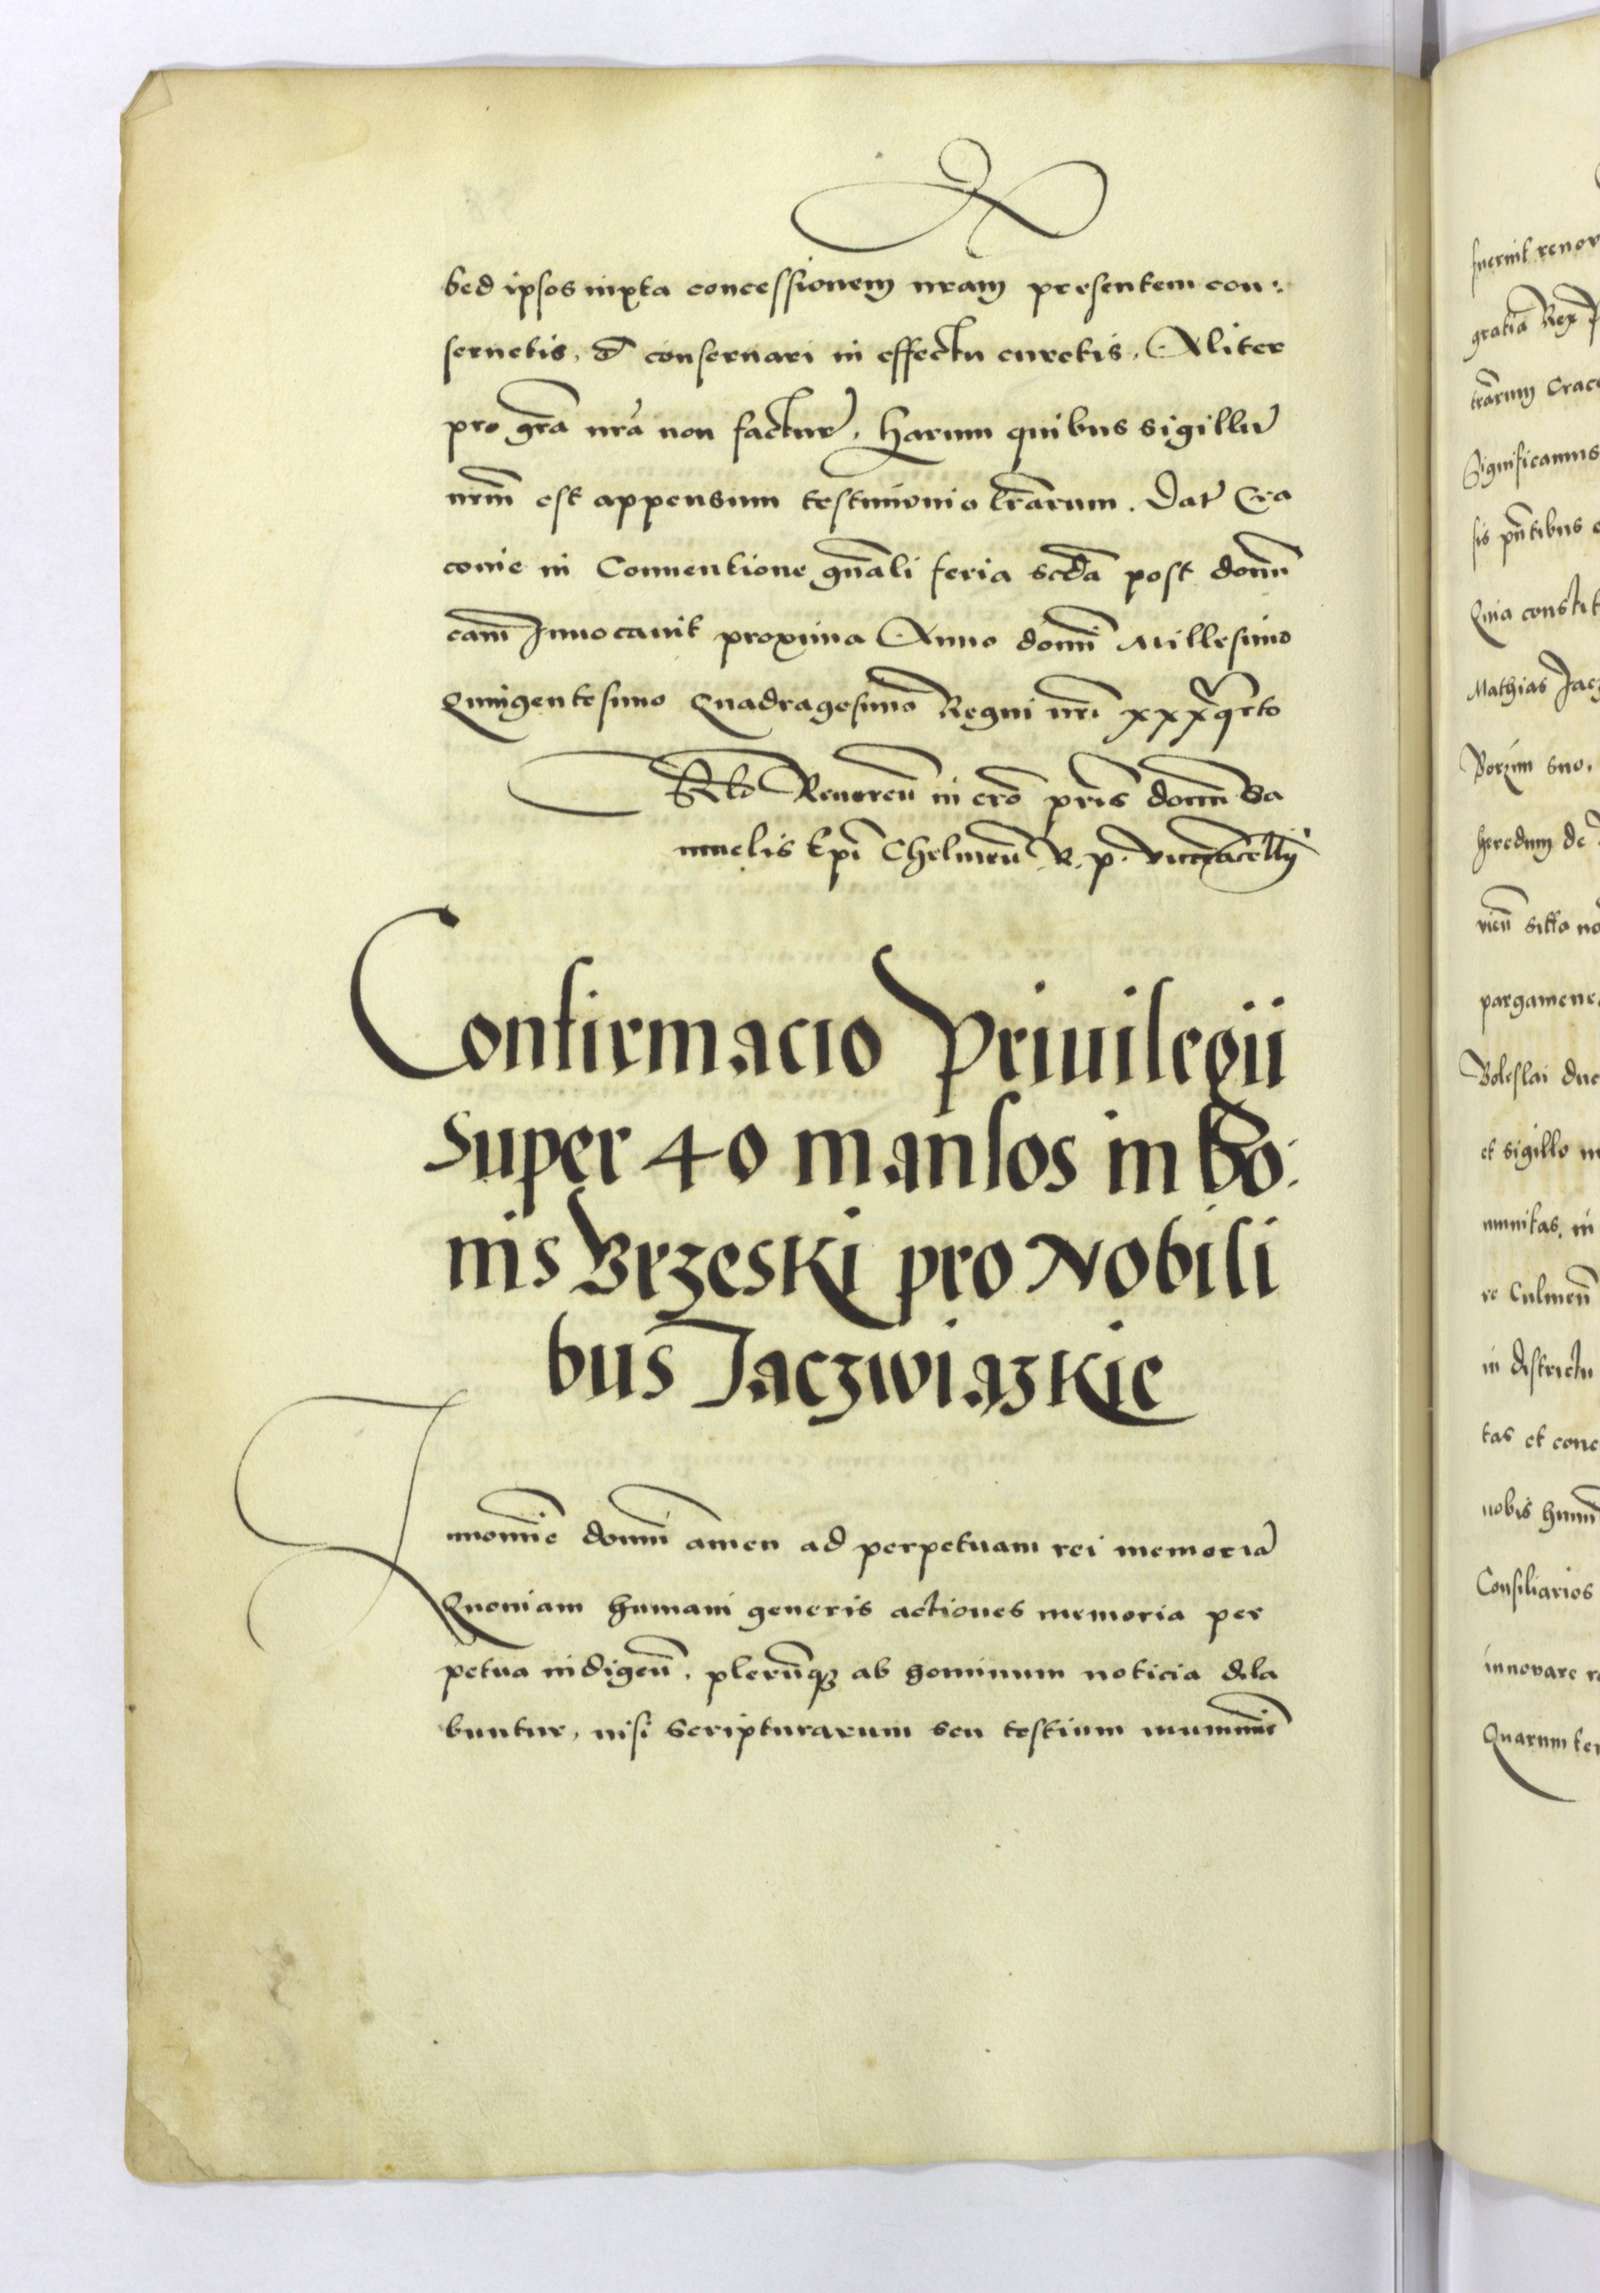 sed ipsos iuxta concessionem nram presentem con:
seruetis, et conseruari in effectu curetis, Aliter
pro gra nra non facturi, Harum quibus sigillu
nrm est appensum testimonio lrarum. Dat Cra
couie in Conuentione gnali feria scda post domi
cam Inuocauit proxima Anno domi Millesimo
Quingentesimo Quadragesimo Regni nri xxxqrto
Rlo Reueren in cro pris domi Sa
muelis Epi Chelmen R. p. vicecancellrij
Confirmacio Priuilegii
super 40 mansos in bo:
nis Brzeski pro Nobili
bus Jaczwiązkie
In nomie domi amen ad perpetuam rei memoria
Quoniam humani generis actiones memoria per
petua indigen, plerunqz ab hominum noticia dila
buntur, nisi scripturarum seu testium munimie
fuerit renov
gratia Rex P
trarum Crac
Significamus
sis pntibus
Quia constit
Mathias Jacz
Borzim suo.
heredum de
vien sitta no
pargamene
Boleslai duc
et sigillo m
munitas, in
re Culmen
in districtu
tas et conc
nobis humi
Consiliarios
innovare r
Quarum ter